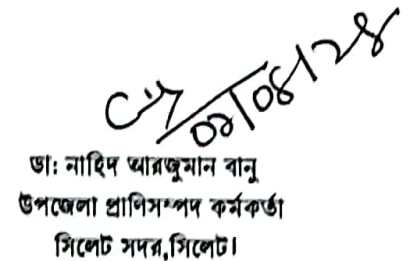 ডা: নাহিদ আরজুমান বানু
উপজেলা প্রাণিসম্পদ কর্মকর্তা
সিলেট সদর,সিলেট।